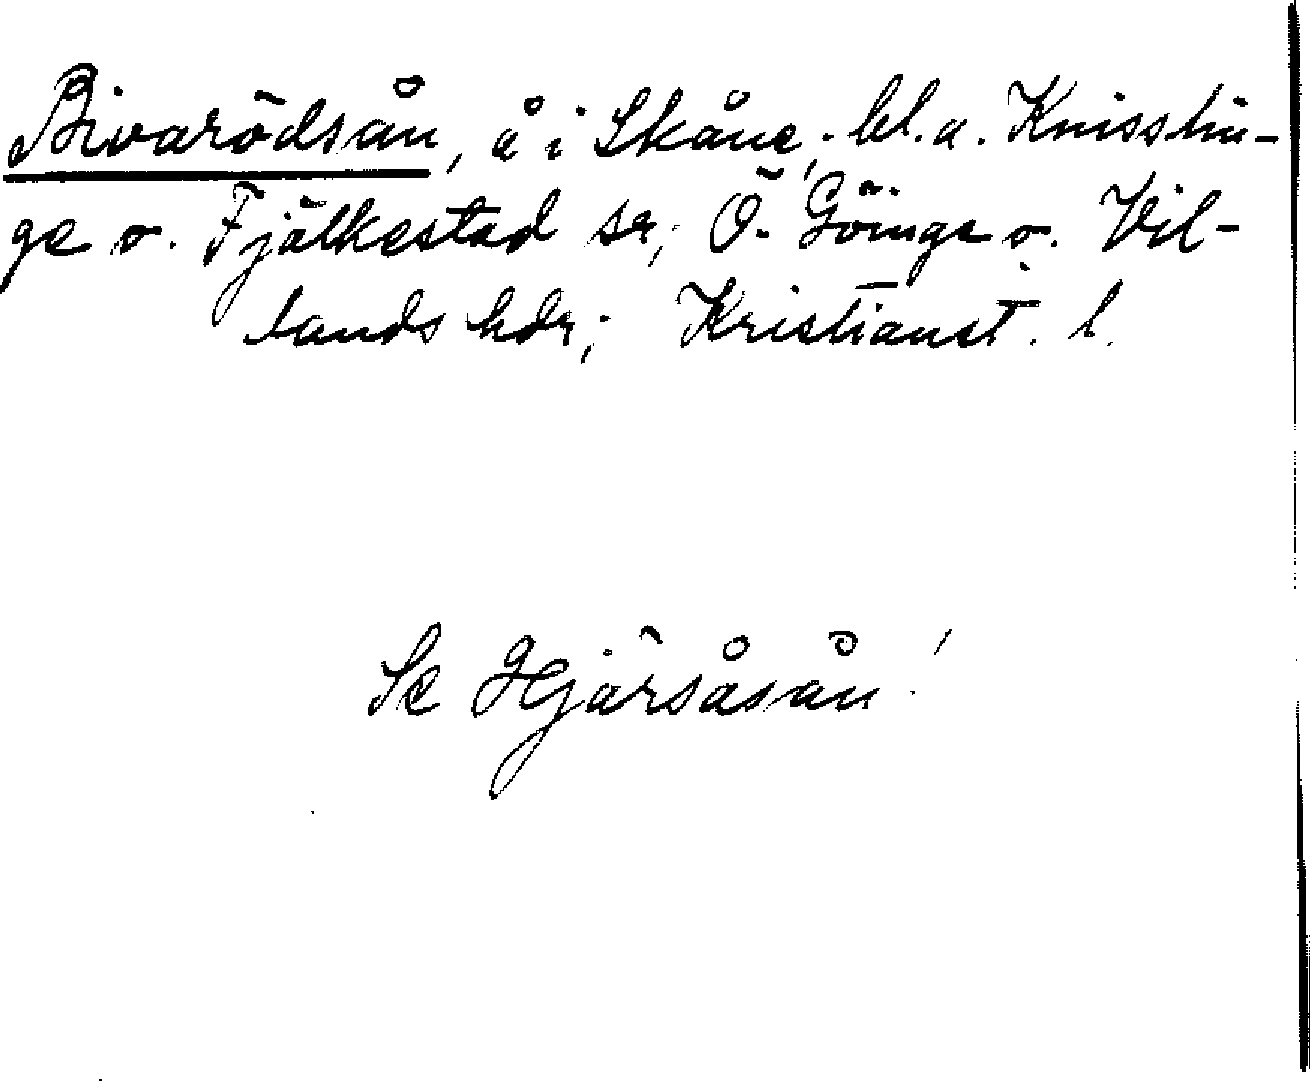 Bivarödsån, å i Skåne; bl.a. Knisslin-
ge o. Fjälkestad sr; Ö. Göinge o. Vil-
lands hdr; Kristianst. l.
Se Hjärsåsån!